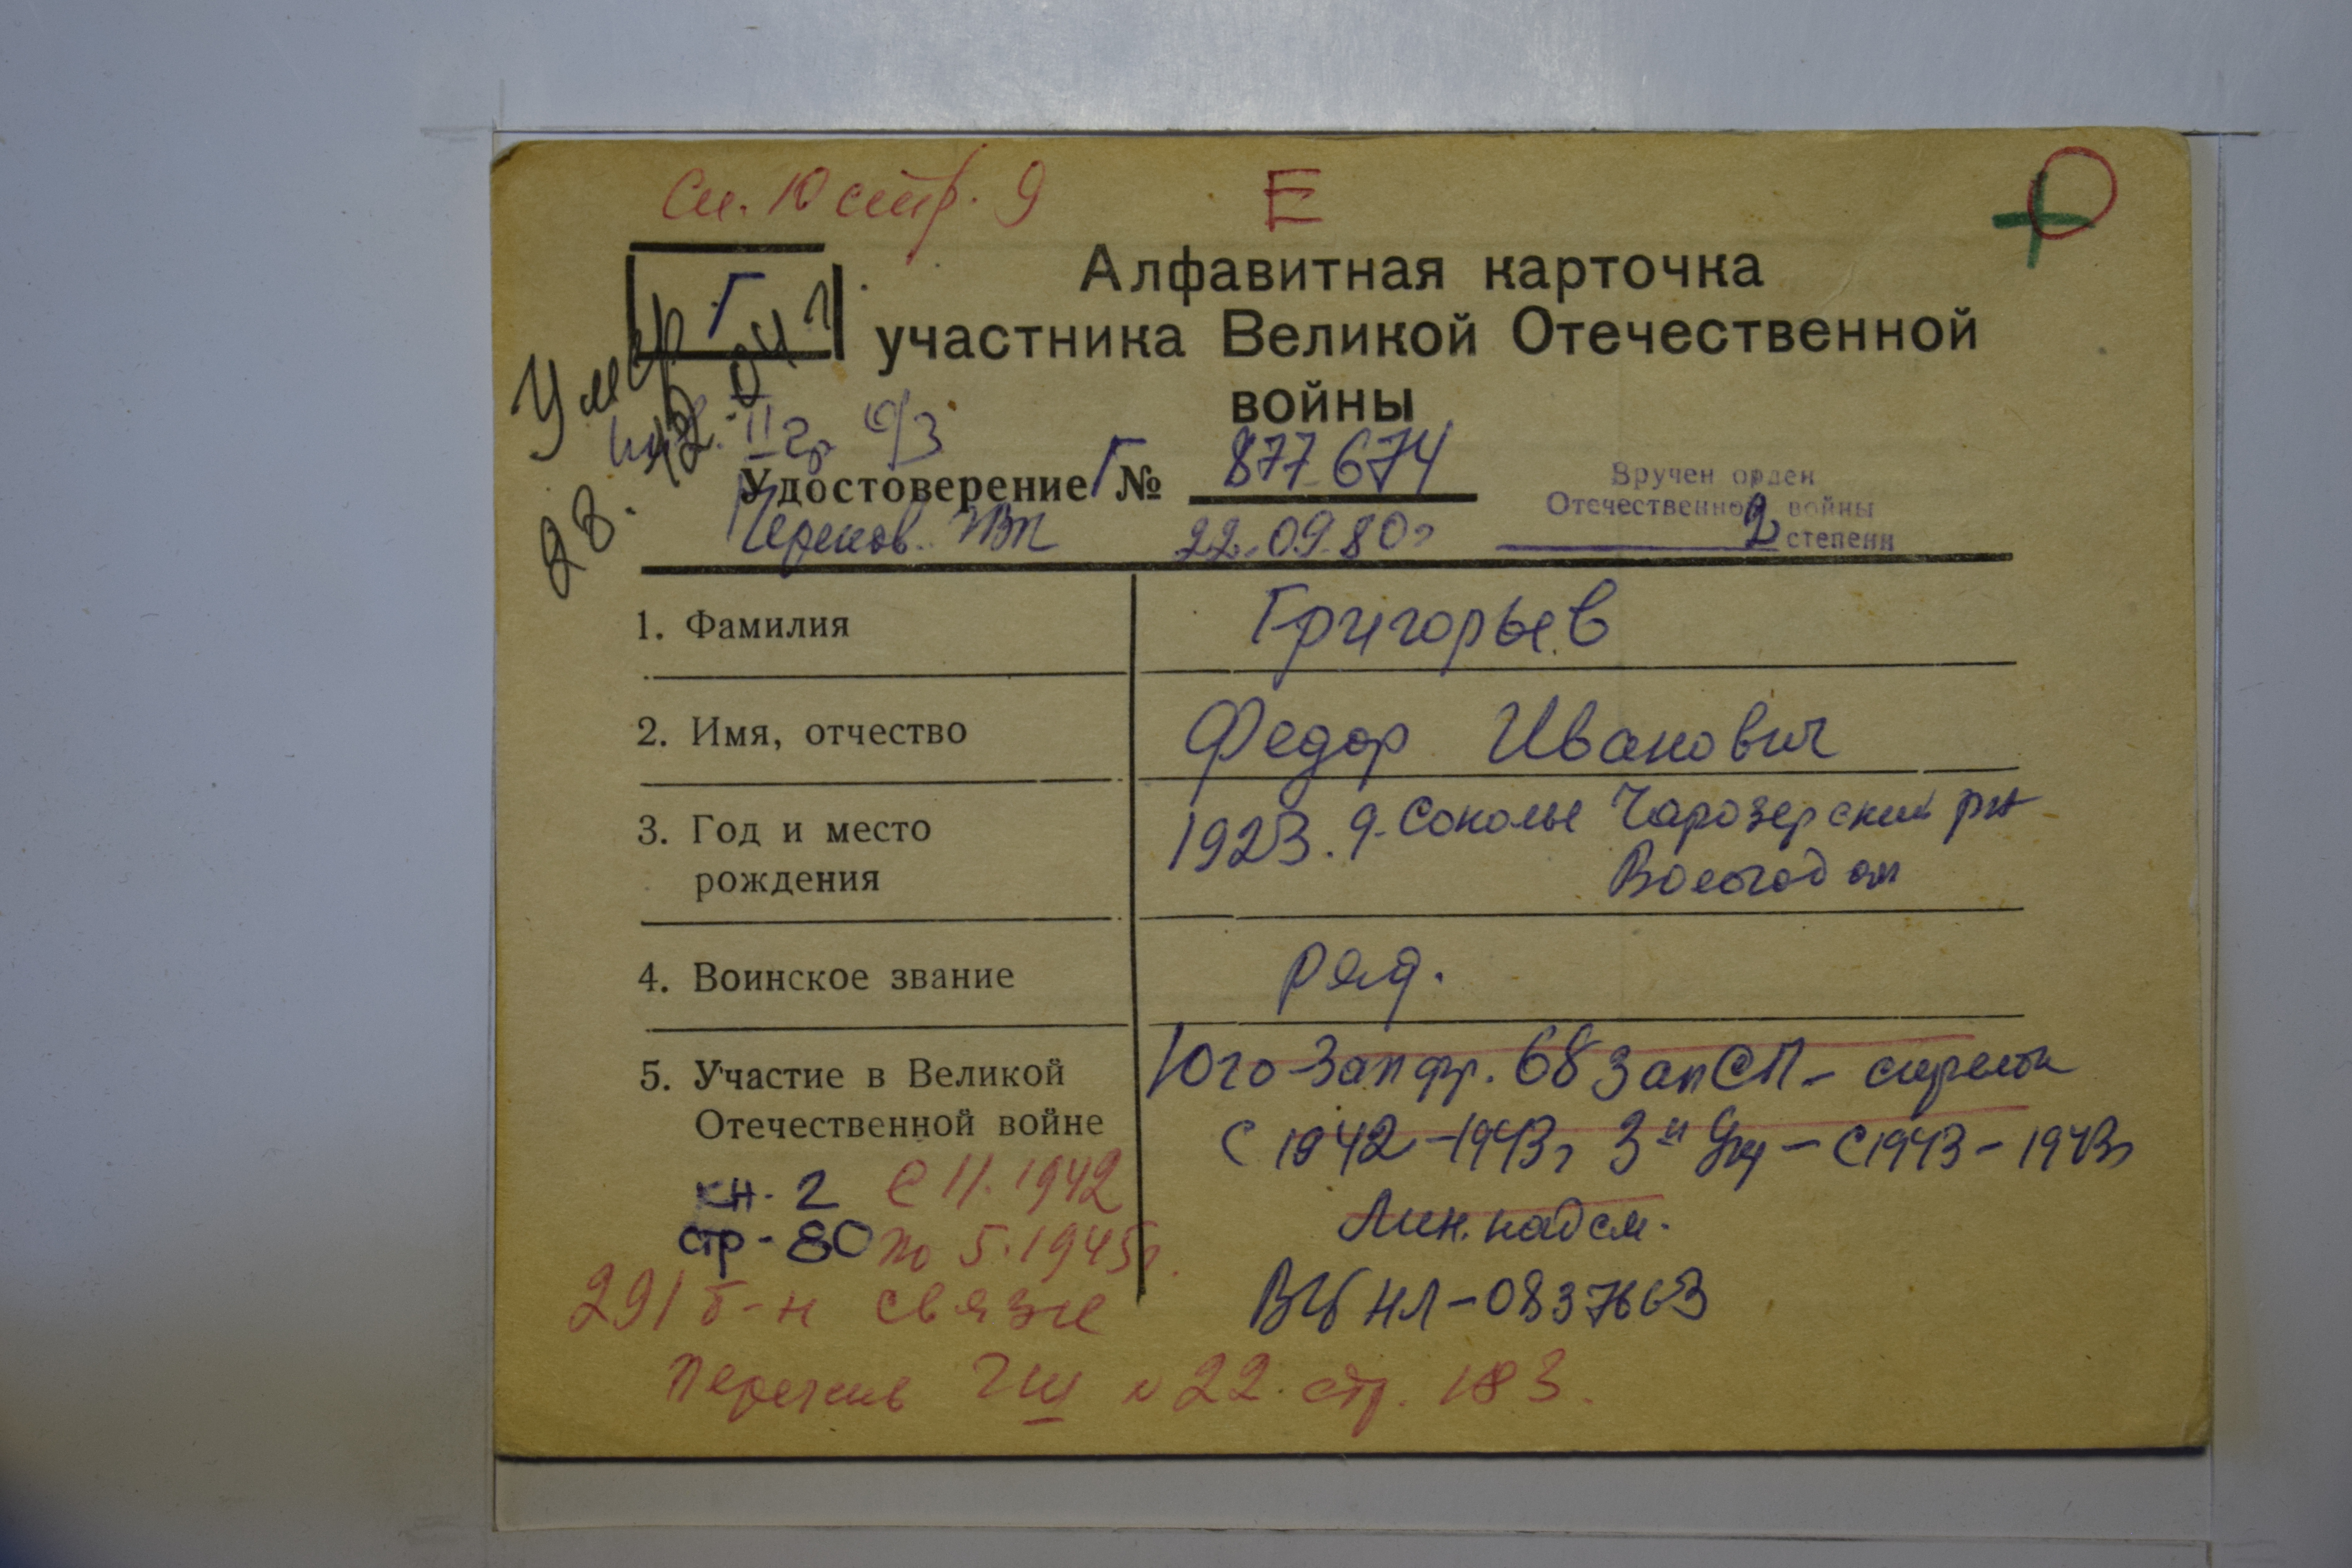 Сп. 10 стр. 9
Е
Г
Алфавитная карточка
участника Великой Отечественной
войны
Умер
28.12.04 г
инв. II гр о/з
Удостоверение Г № 877674
Черепов. ГВК 22.09.80г
Вручен орден
Отечественной войны
2 степени
1. Фамилия Григорьев
2. Имя, отчество Федор Иванович
3. Год и место 1923. д. Соколье Чарозерский рн
рождения Вологод оп
4. Воинское звание ряд.
5. Участие в Великой Юго-Зап фр. 68 зап СП - стрелок
Отечественной войне с 1942-1943г 3й Укр - с 1943-1943г
кн. 2 с 11. 1942
Лин. надсм.
стр - 80 по 5. 1945г.
291 б-н связи
ВБ НЛ-0837663
Перечень ГШ №22. стр. 183.